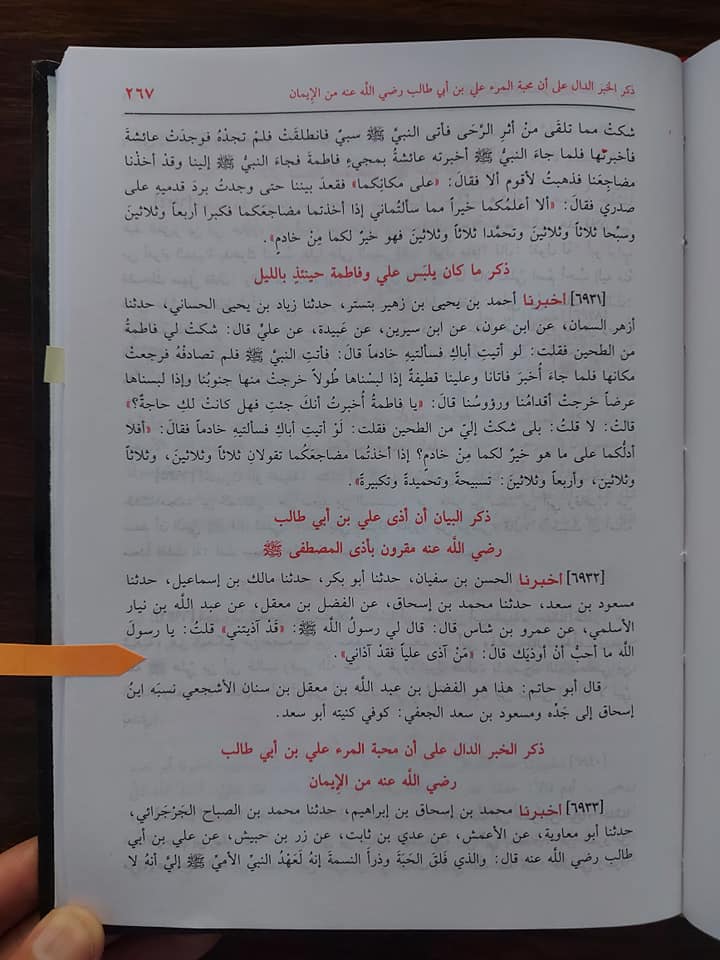 ذكر الخبر الدال على أن محبة المرء علي بن أبي طالب رضي الله عنه من الإيمان ٢٦٧
شكتْ مما تلقَى منْ أثرِ الرَّحَى فأتى النبيَّ ﷺ سبيٌ فانطلقتْ فلمْ تجدْهُ فوجدتْ عائشةَ
فأخبرتْها فلما جاءَ النبيُّ ﷺ أخبرته عائشةُ بمجيءِ فاطمةَ فجاءَ النبيُّ ﷺ إلينا وقدْ أخذْنا
مضاجِعَنا فذهبتُ لأقومَ ألا فقالَ: «على مكانِكما» فقعدَ بيننا حتى وجدتُ بردَ قدميهِ على
صدري فقالَ: «ألا أعلمُكمَا خيراً مما سألتُماني إذا أخذتما مضاجعَكما فكبرا أربعاً وثلاثينَ
وسبّحا ثلاثاً وثلاثينَ وتحمّدا ثلاثاً وثلاثينَ فهو خيرٌ لكما مِنْ خادمٍ».
ذكر ما كان يلبَس علي وفاطمة حينئذٍ بالليل
[٦٩٣١] أخبرنا أحمد بن يحيى بن زهير بتستر، حدثنا زياد بن يحيى الحساني، حدثنا
أزهر السمان، عن ابن عون، عن ابن سيرين، عن عَبيدة، عن عليٍّ قال: شكتْ لي فاطمةُ
من الطحينِ فقلتُ: لو أتيتِ أباكِ فسألتيهِ خادماً قالَ: فأتتِ النبيَّ ﷺ فلم تصادفْهُ فرجعتْ
مكانها فلما جاءَ أُخبرَ فأتانا وعلينا قطيفةٌ إذا لبسْناها طُولاً خرجتْ منها جنوبُنا وإذا لبسناها
عرضاً خرجتْ أقدامُنا ورؤوسُنا قالَ: «يا فاطمةُ أُخبرتُ أنكَ جئتِ فهل كانتْ لكِ حاجةٌ؟»
قالتْ: لا قلتُ: بلى شكتْ إليَّ من الطحينِ فقلت: لَوْ أتيتِ أباكِ فسألتيهِ خادماً فقالَ: «أفلا
أدلُّكما على ما هو خيرٌ لكما مِنْ خادمٍ؟ إذا أخذتُما مضاجعَكُما تقولانِ ثلاثاً وثلاثينَ، وثلاثاً
وثلاثين، وأربعاً وثلاثينَ: تسبيحةً وتحميدةً وتكبيرةً».
ذكر البيان أن أذى علي بن أبي طالب
رضي الله عنه مقرون بأذى المصطفى ﷺ
[٦٩٣٢] أخبرنا الحسن بن سفيان، حدثنا أبو بكر، حدثنا مالك بن إسماعيل، حدثنا
مسعود بن سعد، حدثنا محمد بن إسحاق، عن الفضل بن معقل، عن عبد الله بن نيار
الأسلمي، عن عمرو بن شاس قال: قال لي رسولُ الله ﷺ: «قَدْ آذيتني» قلتُ: يا رسولَ
الله ما أحبُّ أنْ أوذيَك قالَ: «مَنْ آذى علياً فقدْ آذاني».
قال أبو حاتم: هذا هو الفضل بن عبد الله بن معقل بن سنان الأشجعي نسبَه ابنُ
إسحاق إلى جَدِّه ومسعود بن سعد الجعفي: كوفي كنيته أبو سعد.
ذكر الخبر الدال على أن محبة المرء علي بن أبي طالب
رضي الله عنه من الإيمان
[٦٩٣٣] أخبرنا محمد بن إسحاق بن إبراهيم، حدثنا محمد بن الصباح الجَرْجَرائي،
حدثنا أبو معاوية، عن الأعمش، عن عدي بن ثابت، عن زر بن حبيش، عن علي بن أبي
طالب رضي الله عنه قال: والذي فَلَقَ الحَبَةَ وذرأ النسمةَ إنهُ لَعَهْدُ النبيِّ الأميِّ ﷺ إليَّ أنهُ لا